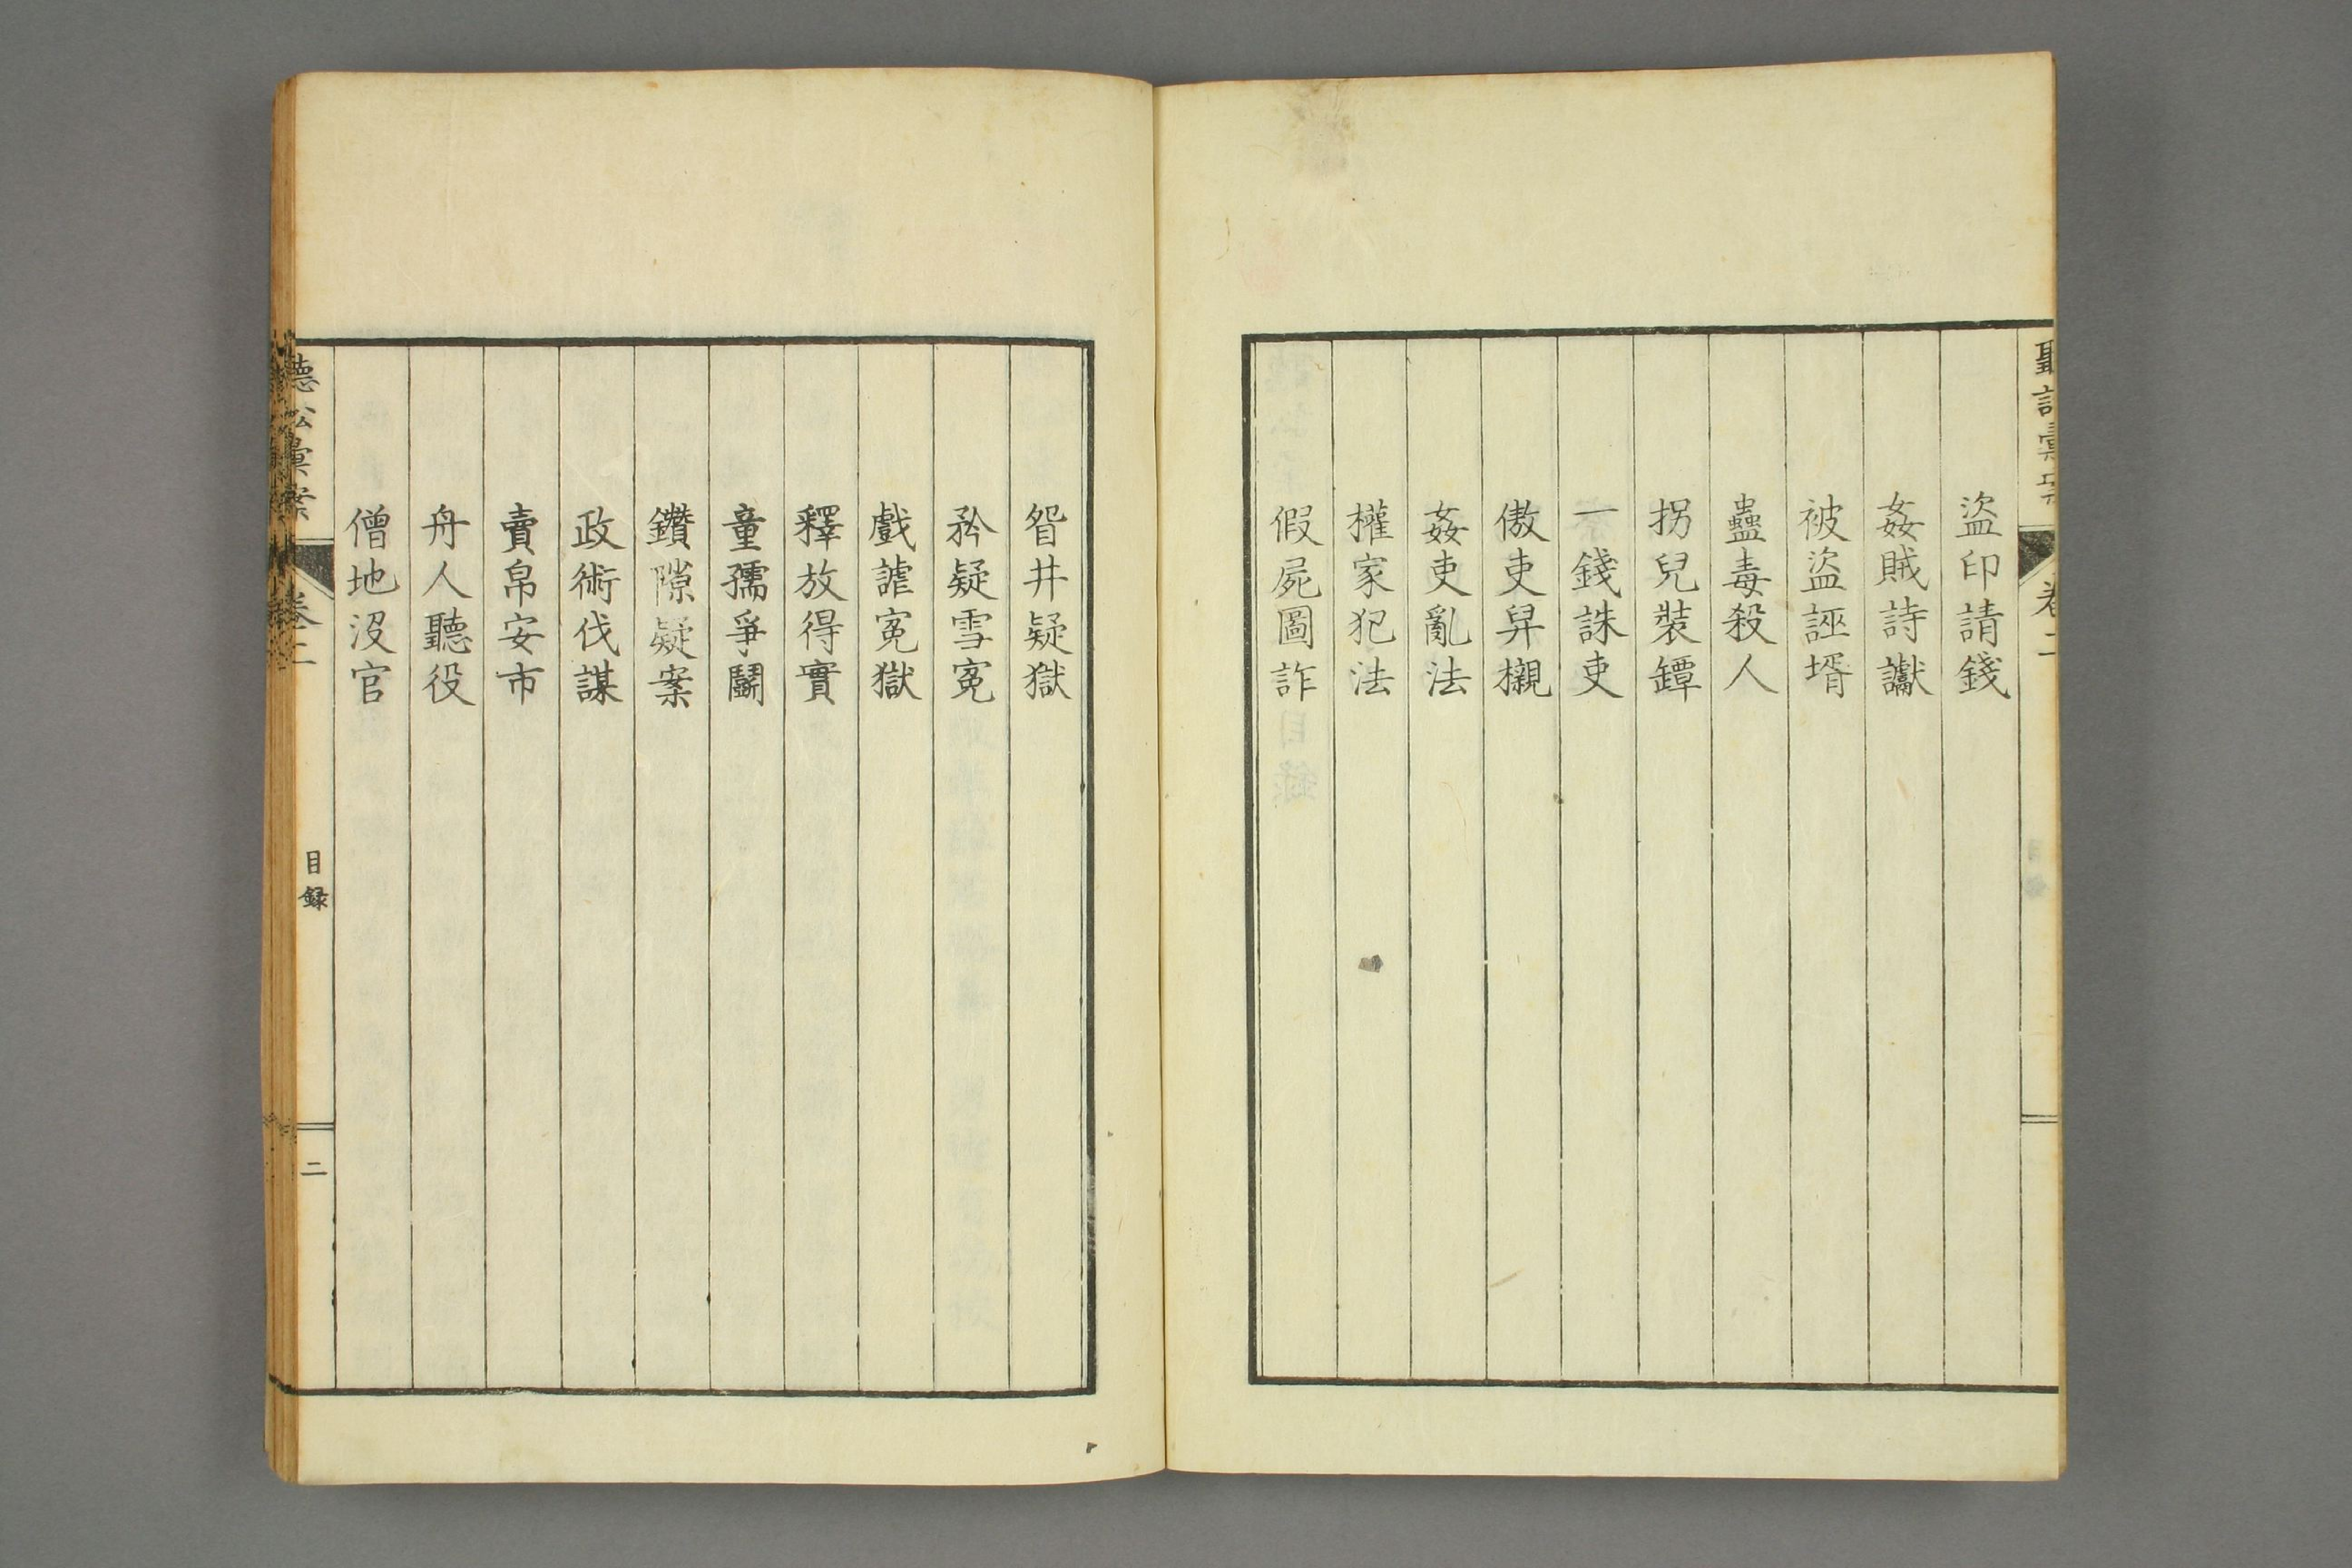 盜印請錢
姦賊詩讞
被盜誣壻
蠱毒殺人
拐兒裝罈
一錢誅吏
傲吏舁櫬
姦吏亂法
權家犯法
假屍圖詐
眢井疑獄
矜疑雪冤
戲謔冤獄
釋放得實
童孺爭鬭
鑽隙疑案
政術伐謀
賣帛安市
舟人聽役
僧地沒官
聽訟彙案
卷二
目録
二